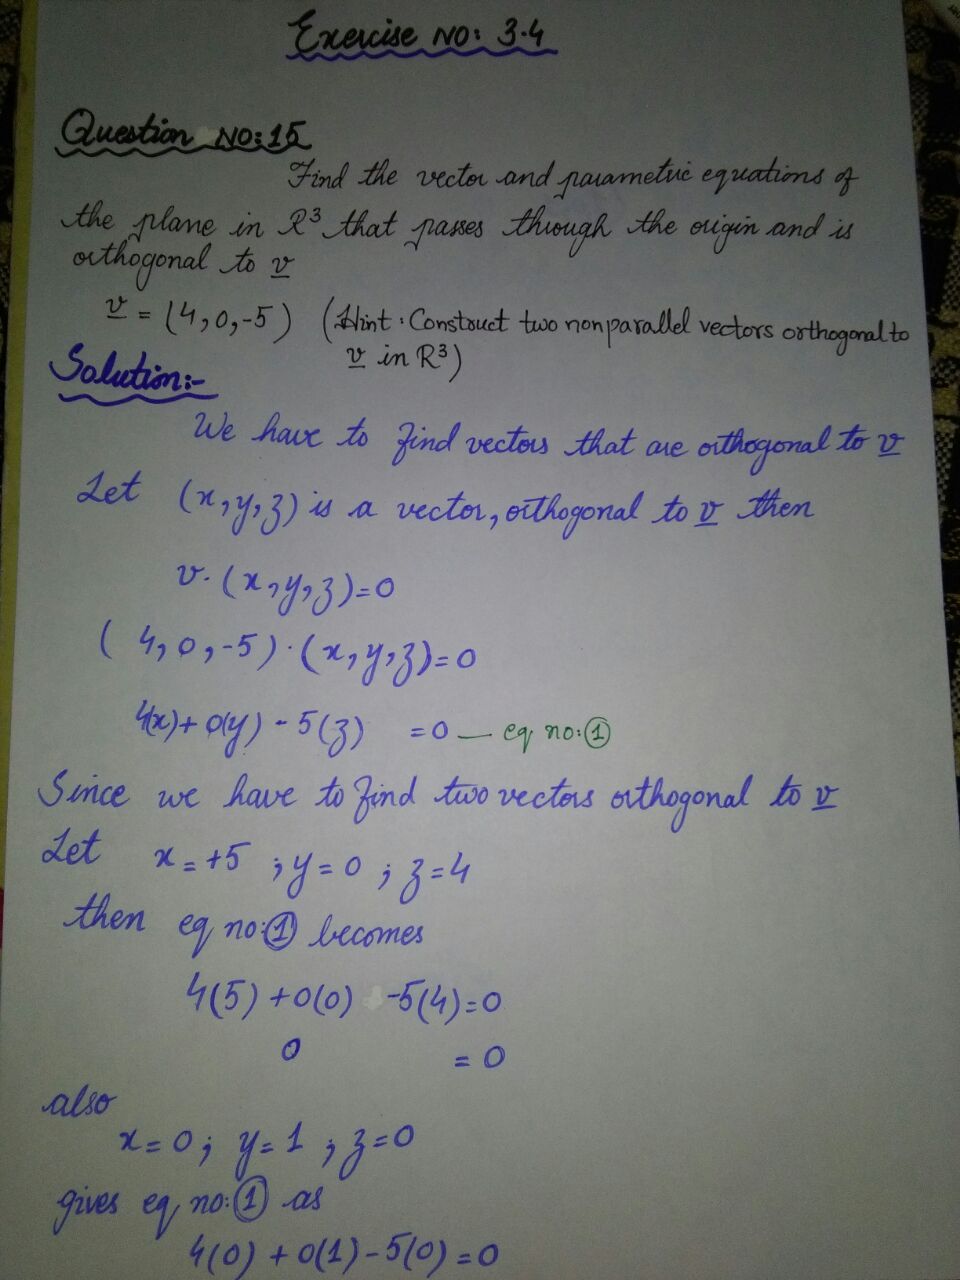 Exercise NO: 3.4
Question NO:15
Find the vector and parametric equations of
the plane in R³ that passes through the origin and is
orthogonal to v
v = (4,0,-5) (Hint: Construct two nonparallel vectors orthogonal to
v in R³)
Solution:-
We have to find vectors that are orthogonal to v
Let (x,y,z) is a vector, orthogonal to v then
v.(x,y,z)=0
(4,0,-5).(x,y,z)=0
4(x)+0(y)-5(z) =0 — eq no:①
Since we have to find two vectors orthogonal to v
Let x=+5 ; y=0 ; z=4
then eq no:① becomes
4(5)+0(0) -5(4)=0
0 = 0
also
x=0; y=1 ; z=0
gives eq no:① as
4(0)+0(1)-5(0)=0